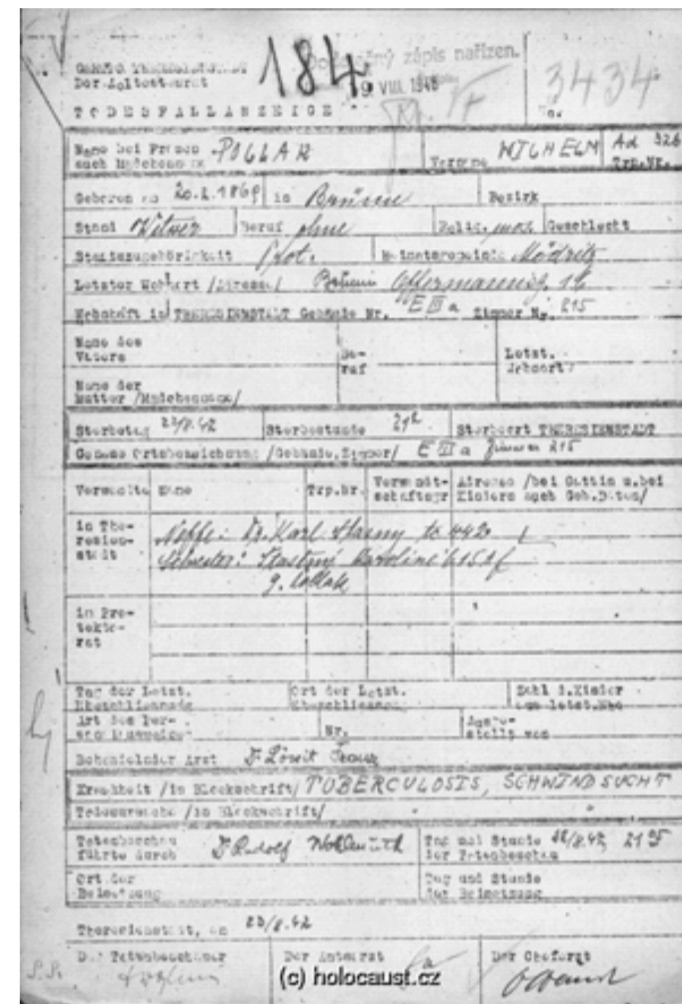 GHETTO THERESIENSTADT 184 Dodatečný zápis nařízen.
Der Ältestenrat 9 VIII. 1948 3434
TODESFALLANZEIGE
Name bei Frauen auch Mädchenname POLLAK Vorname WILHELM Ad 326 Trp.Nr.
Geboren am 20. 1869 in Brünn Bezirk
Stand Witwer Beruf ohne Relig. mos. Geschlecht
Staatszugehörigkeit Prot. Heimatsgemeinde Mödritz
Letzter Wohnort /Adresse/ Brünn Offermanng. 16
Wohnhaft in THERESIENSTADT Gebäude Nr. E III a Zimmer Nr. 215
Name des Vaters Beruf Letzt. Wohnort
Name der Mutter /Mädchenname/
Sterbetag 22/8.42 Sterbestunde 21 Sterbeort THERESIENSTADT
Genaue Ortsbezeichnung /Gebäude, Zimmer/ E III a Zimmer 215
Verwandte Name Trp.Nr. Verwandtschaftsgr Adresse /bei Gattin u. bei Kindern auch Geb.Daten/
in Theresienstadt Neffe: Dr. Karl Stasny
Schwester: Stastny Karoline
g. Pollak
in Protektorat
Tag der letzt. Eheschliessung Ort der letzt. Eheschliessung Zahl d. Kinder aus letzt. Ehe
Art des Personalausweises Nr. Ausgestellt von
Behandelnder Arzt Dr Löwit Franz
Krankheit /in Blockschrift/ TUBERCULOSIS, SCHWINDSUCHT
Todesursache /in Blockschrift/ " "
Totenbeschau führte durch Dr Rudolf Wohlmuth Tag und Stunde der Totenbeschau 22/8.42, 21
Ort der Beisetzung Tag und Stunde der Beisetzung
Theresienstadt, am 23/8.42
Der Totenbeschauer Der Amtsarzt Der Chefarzt
(c) holocaust.cz